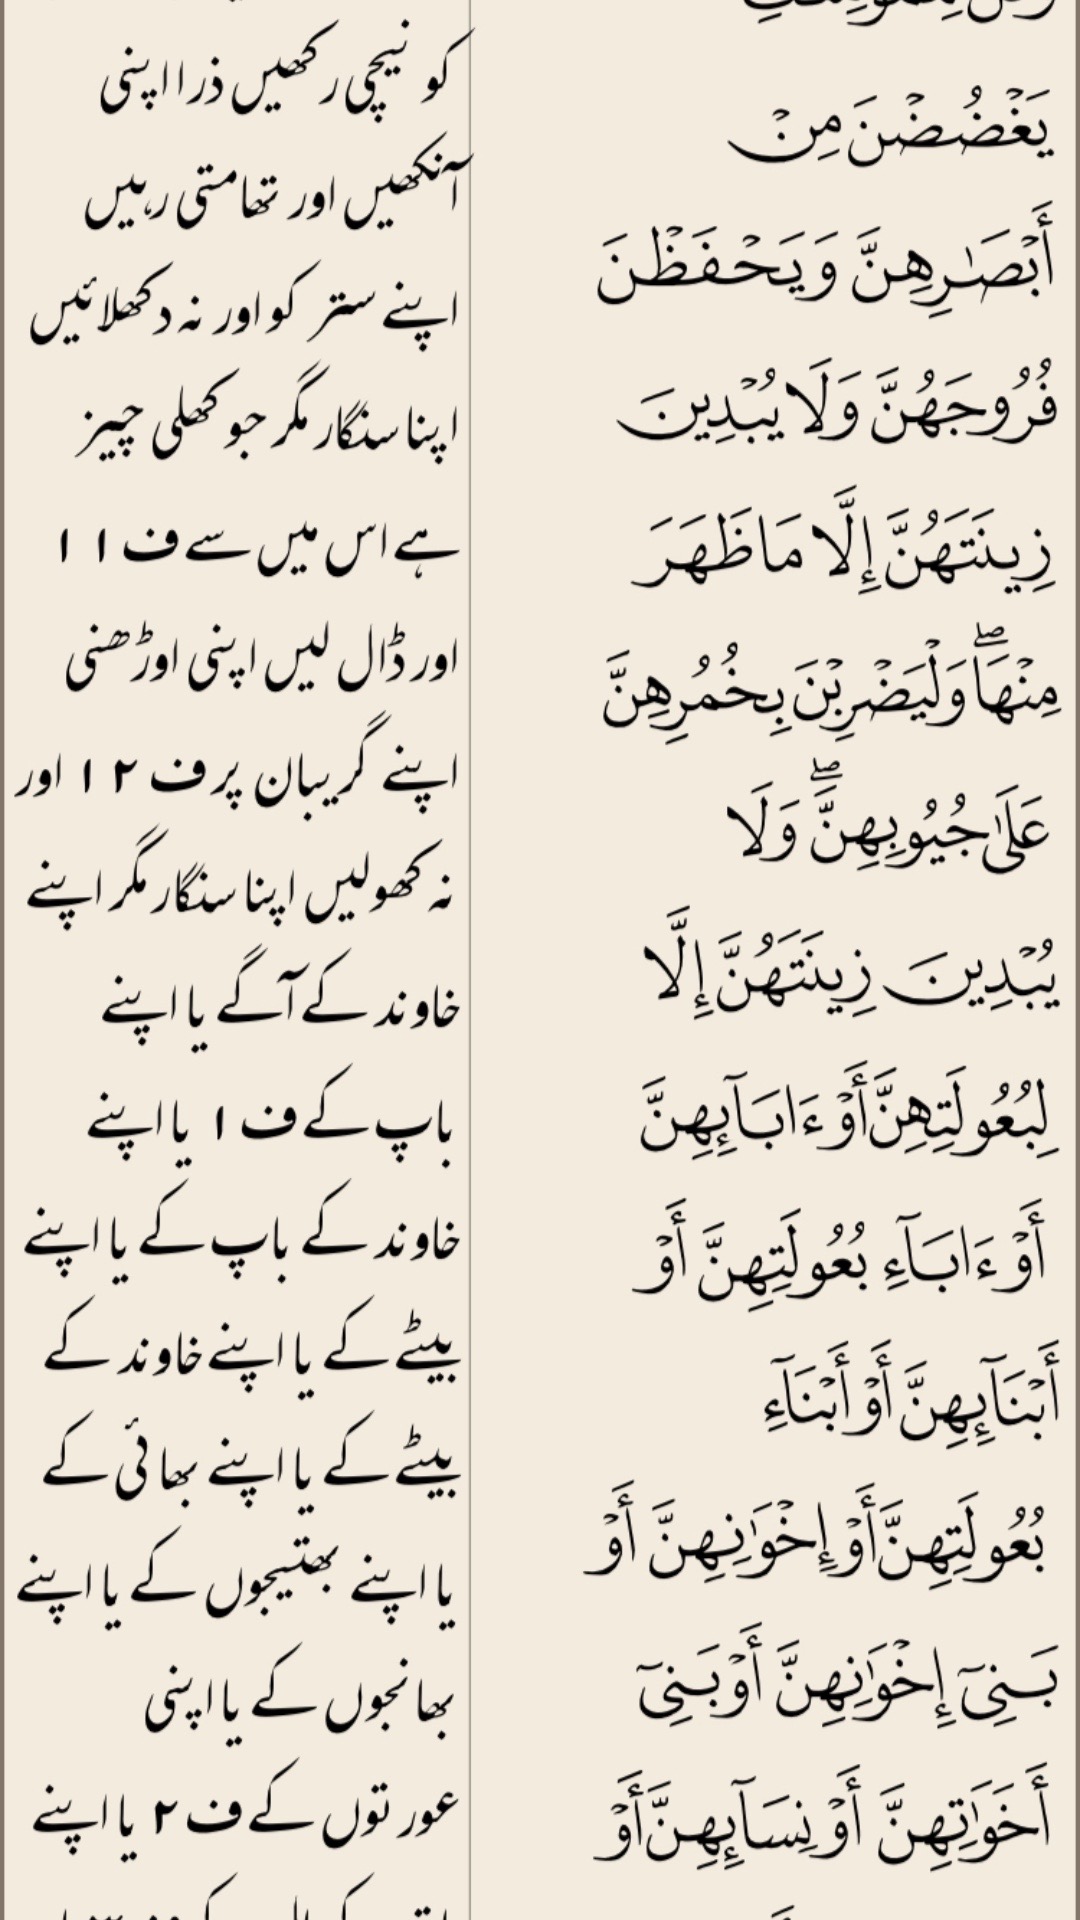 يَغۡضُضۡنَ مِنۡ
أَبۡصَٰرِهِنَّ وَيَحۡفَظۡنَ
فُرُوجَهُنَّ وَلَا يُبۡدِينَ
زِينَتَهُنَّ إِلَّا مَا ظَهَرَ
مِنۡهَاۖ وَلۡيَضۡرِبۡنَ بِخُمُرِهِنَّ
عَلَىٰ جُيُوبِهِنَّۖ وَلَا
يُبۡدِينَ زِينَتَهُنَّ إِلَّا
لِبُعُولَتِهِنَّ أَوۡ ءَابَآئِهِنَّ
أَوۡ ءَابَآءِ بُعُولَتِهِنَّ أَوۡ
أَبۡنَآئِهِنَّ أَوۡ أَبۡنَآءِ
بُعُولَتِهِنَّ أَوۡ إِخۡوَٰنِهِنَّ أَوۡ
بَنِيٓ إِخۡوَٰنِهِنَّ أَوۡ بَنِيٓ
أَخَوَٰتِهِنَّ أَوۡ نِسَآئِهِنَّ أَوۡ
کو نیچی رکھیں ذرا اپنی
آنکھیں اور تھامتی رہیں
اپنے ستر کو اور نہ دکھلائیں
اپنا سنگار مگر جو کھلی چیز
ہے اس میں سے ف ۱۱
اور ڈال لیں اپنی اوڑھنی
اپنے گریبان پر ف ۱۲ اور
نہ کھولیں اپنا سنگار مگر اپنے
خاوند کے آگے یا اپنے
باپ کے ف ۱ یا اپنے
خاوند کے باپ کے یا اپنے
بیٹے کے یا اپنے خاوند کے
بیٹے کے یا اپنے بھائی کے
یا اپنے بھتیجوں کے یا اپنے
بھانجوں کے یا اپنی
عورتوں کے ف ۲ یا اپنے